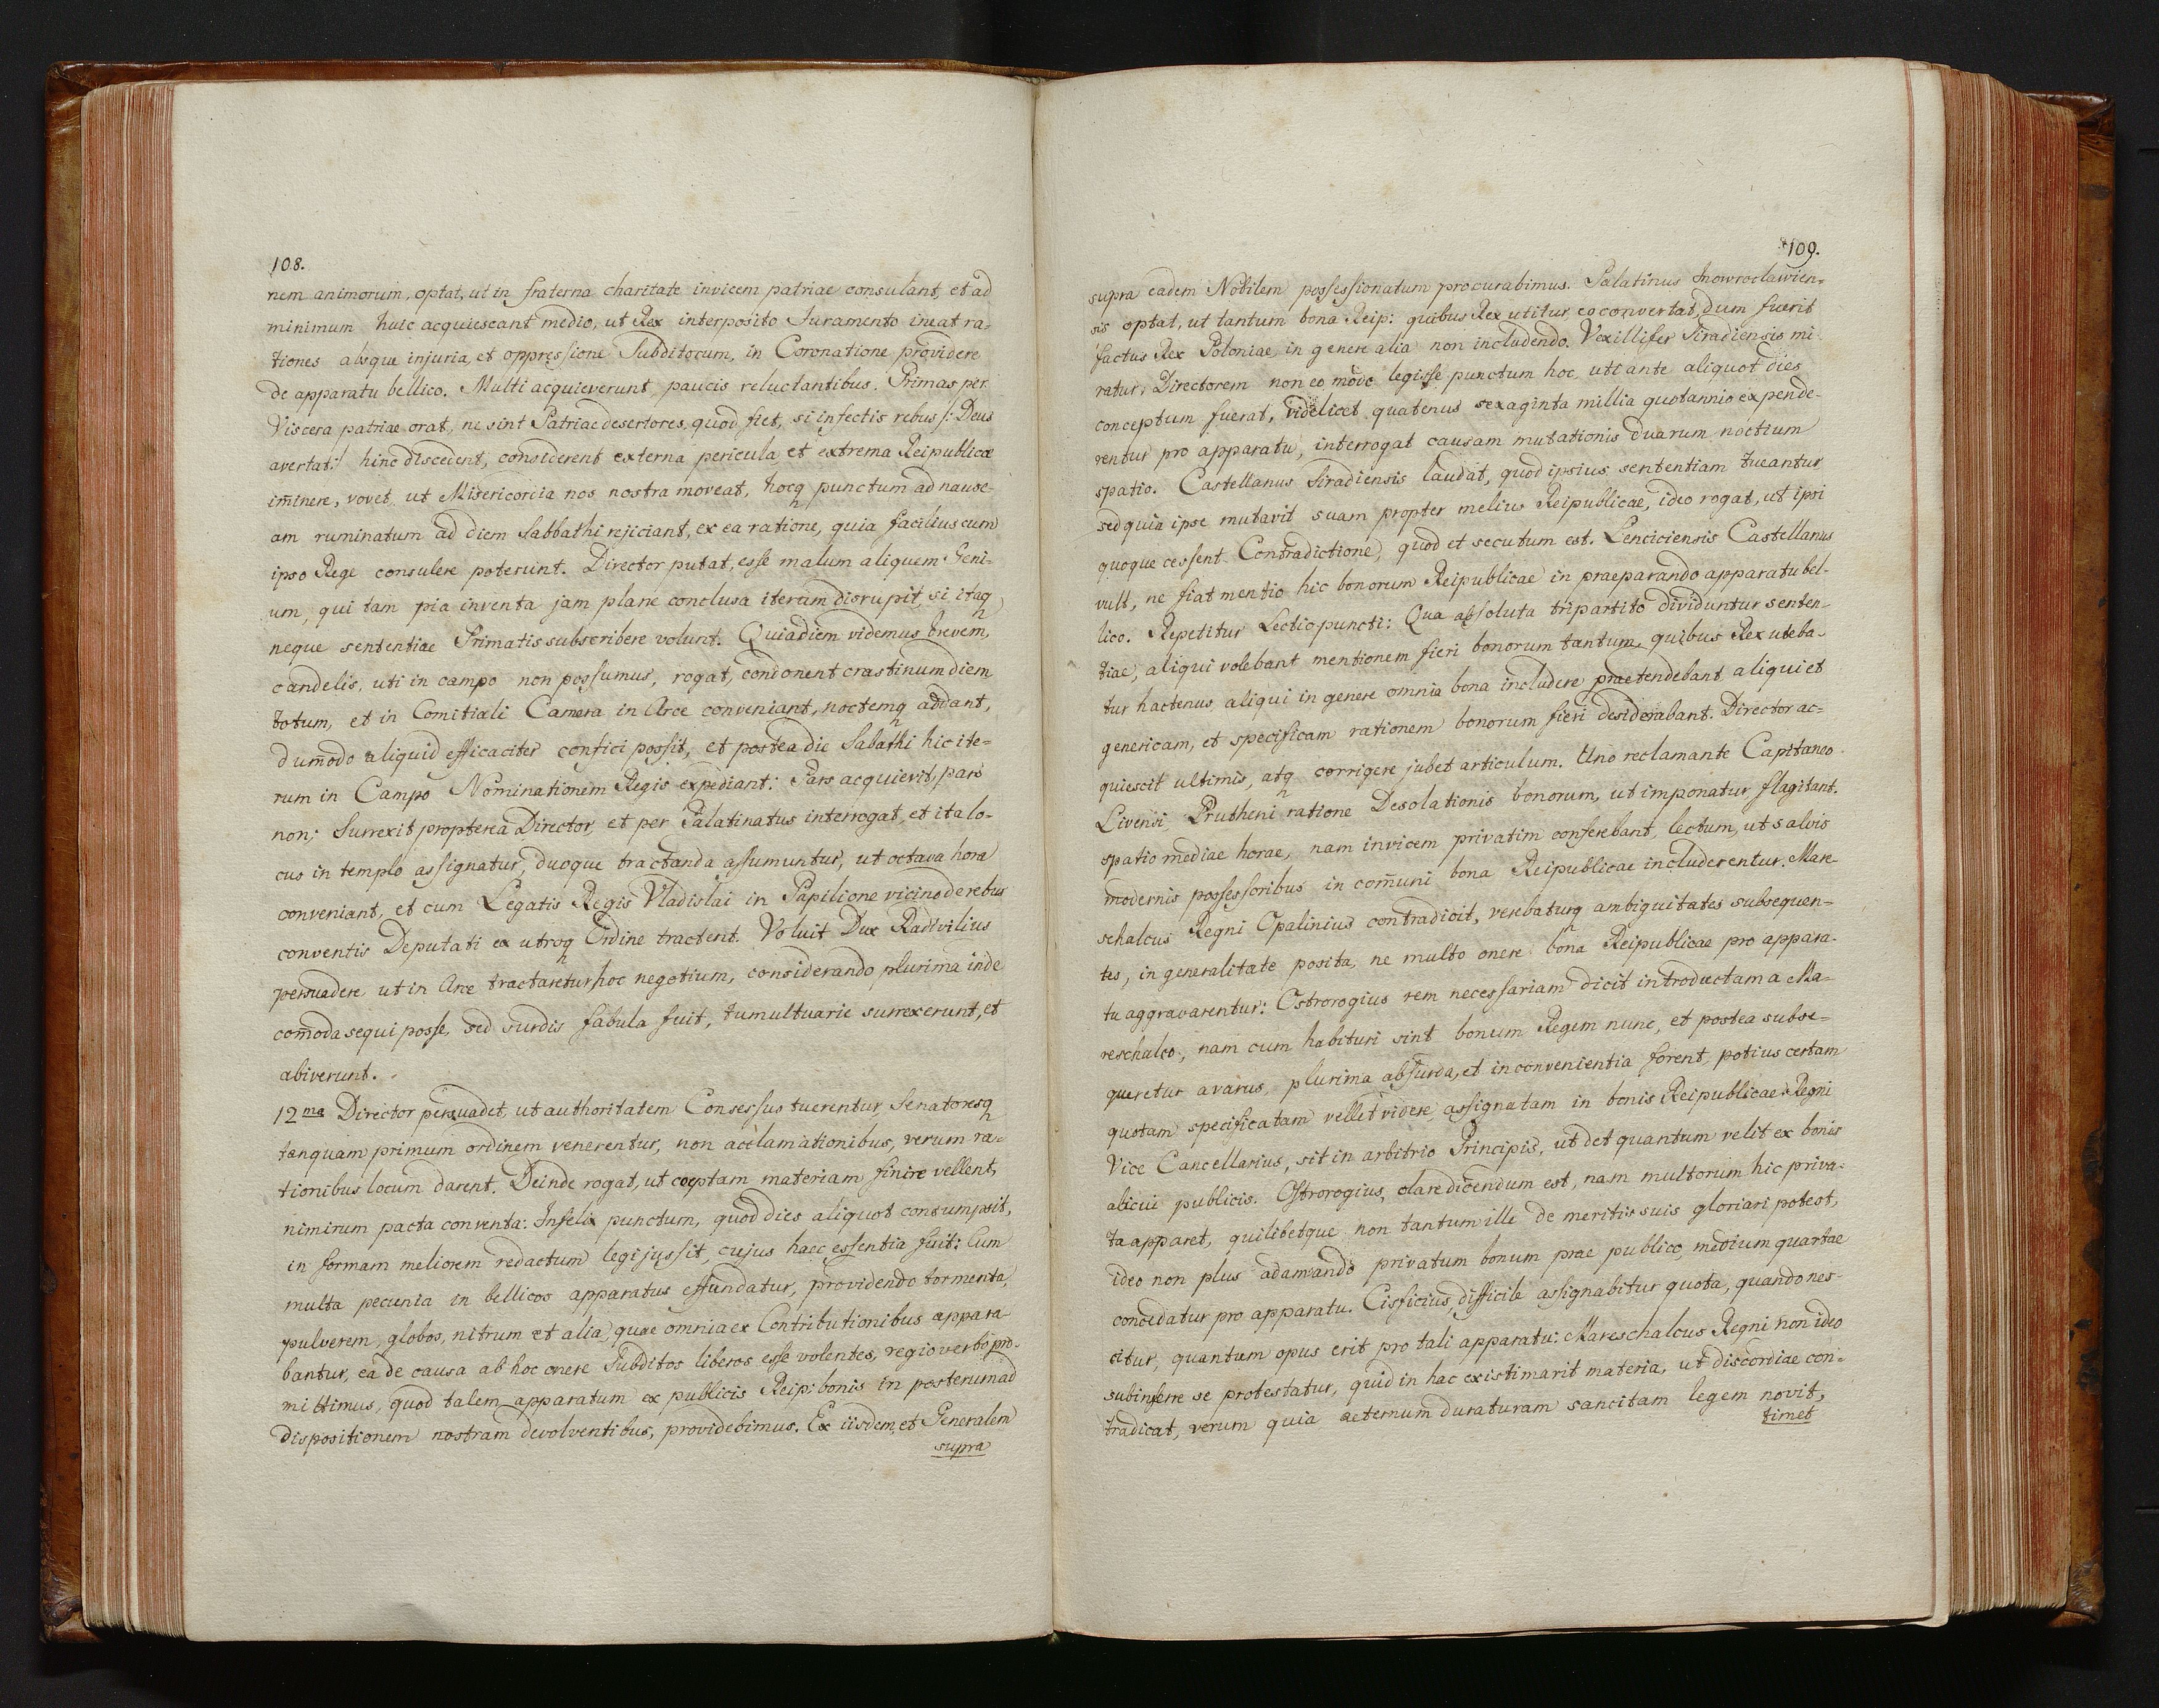 108.
nem animorum, optat, ut in fraterna charitate invicem patriae consulant, et ad
minimum huic acquiescant medio, ut Rex interposito Juramento ineat ra-
tiones absque injuria, et oppressione Subditorum, in Coronatione providere
de apparatu bellico. Multi acquieverunt, paucis reluctantibus. Primas per
Viscera patriae orat, ne sint Patriae desertores, quod fiet, si infectis rebus /: Deus
avertat:/ hinc discedent, considerent externa pericula et extrema Reipublicae
im̅inere, vovet ut Misericordia nos nostra moveat, hocq punctum ad nause-
am ruminatum ad diem Sabbathi rejiciant, ex ea ratione, quia facilius cum
ipso Rege consulere poterunt. Director putat, esse malum aliquem Geni-
um, qui tam pia inventa jam plane conclusa iterum disrupit, si itaq
neque sententiae Primatis subscribere volunt. Quia diem videmus brevem,
candelis, uti in campo non possumus, rogat, condonent crastinum diem
totum, et in Comitiali Camera in Arce conveniant, noctemq addant,
dum̅odo aliquid efficaciter confici possit, et postea die Sabathi hic ite-
rum in Campo Nominationem Regis expediant: Pars acquievit, pars
non; Surrexit propterea Director, et per Palatinatus interrogat, et ita lo-
cus in templo assignatur, duoque tractanda assumuntur, ut octava hora
conveniant, et cum Legatis Regis Vladislai in Papilione vicino de rebus
conventis Deputati ex utroq Ordine tractent. Voluit Dux Radivilius
persuadere ut in Arce tractaretur hoc negotium, considerando plurima inde
com̅oda sequi posse, sed surdis fabula fuit, tumultuarie surrexerunt, et
abiverunt.
12 ma Director persuadet, ut authoritatem Consessus tuerentur, Senatoresq
tanquam primum ordinem venerentur, non acclamationibus, verum ra-
tionibus locum darent. Deinde rogat, ut coeptam materiam finire vellent,
nimirum pacta conventa: Infelix punctum, quod dies aliquot consumpsit,
in formam meliorem redactum legi jussit, cujus haec essentia fuit: Cum
multa pecunia in bellicos apparatus effundatur, providendo tormenta,
pulverem, globos, nitrum et alia, quae omnia ex Contributionibus appara
bantur, ea de causa ab hoc onere Subditos liberos esse volentes, regio verbo pro-
mittimus, quod talem apparatum ex publicis Reip: bonis in posterum ad
dispositionem nostram devolventibus, providebimus. Ex iisdem, et Generalem
supra
109.
supra eadem Nobilem possessionatum procurabimus. Palatinus Inowroclawien-
sis optat, ut tantum bona Reip: quibus Rex utitur, eo convertat, dum fuerit
factus Rex Poloniae, in genere alia non includendo. Vexillifer Siradiensis mi-
ratur, Directorem non eo mo̅do legisse punctum hoc, uti ante aliquot dies
conceptum fuerat, videlicet quatenus sexaginta millia quotannis expende-
rentur pro apparatu, interrogat causam mutationis duarum noctium
spatio. Castellanus Siradiensis laudat, quod ipsius sententiam tueantur
sed quia ipse mutavit suam propter melius Reipublicae, ideo rogat, ut ipsi
quoque cessent Contradictione, quod et secutum est. Lenciciensis Castellanus
vult, ne fiat mentio hic bonorum Reipublicae in praeparando apparatu bel-
lico. Repetitur Lectio puncti: Qua absoluta tripartito dividuntur senten-
tiae, aliqui volebant mentionem fieri bonorum tantum, quibus Rex uteba-
tur hactenus, aliqui in genere omnia bona includere praetendebant, aliqui et
genericam, et specificam rationem bonorum fieri desiderabant. Director ac-
quiescit ultimis, atq corrigere jubet articulum. Uno reclamante Capitaneo
Livensi, Prutheni ratione Desolationis bonorum, ut imponatur, flagitant.
spatio mediae horae, nam invicem privatim conferebant, lectum, ut salvis
modernis possessoribus in com̅uni bona Reipublicae includerentur. Mare-
schalcus Regni Opalinius contradicit, verebaturq ambiguitates subsequen-
tes, in generalitate posita, ne multo onere bona Reipublicae pro appara-
tu aggravarentur: Ostrorogius rem necessariam dicit introductam a Ma-
reschalco, nam cum habituri sint bonum Regem nunc, et postea subse-
queretur avarus, plurima absurda, et inconvenientia forent, potius certam
quotam specificatam vellet videre, assignatam in bonis Reipublicae. Regni
Vice Cancellarius, sit in arbitrio Principis, ut det quantum velit ex bonis
alicui publicis. Ostrorogius, clare dicendum est, nam multorum hic priva-
ta apparet, quilibetque non tantum ille de meritis suis gloriari potest,
ideo non plus adamando privatum bonum prae publico, medium quartae
concedatur pro apparatu. Cisficius, difficile assignabitur quota, quando nes-
citur, quantum opus erit pro tali apparatu: Mareschalcus Regni non ideo
subinferre se protestatur, quid in hac existimarit materia, ut discordiae con-
tradicat, verum quia aeternum duraturam sancitam legem novit,
timet